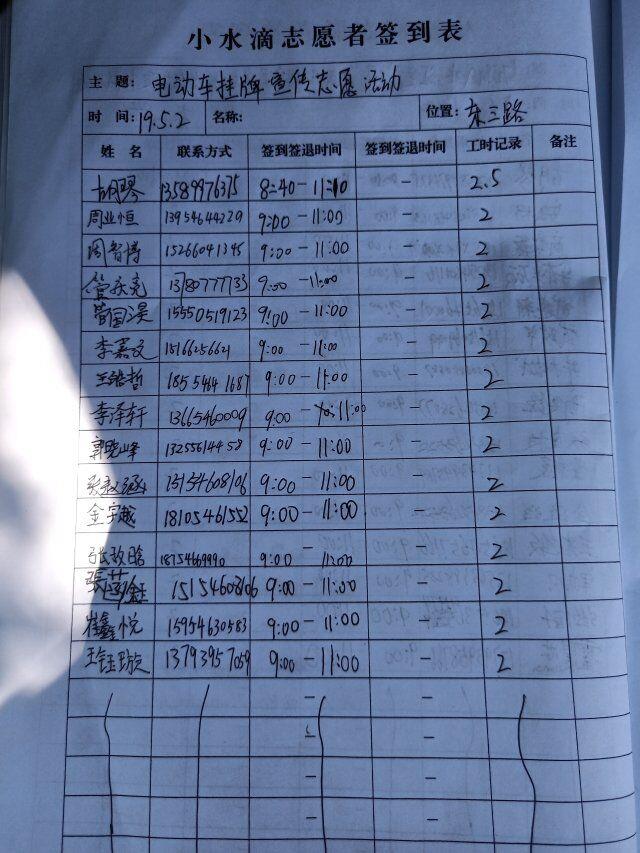 小水滴志愿者签到表
主 题: 电动车挂牌宣传志愿活动
时 间: 19.5.2 名称: 位置: 东三路
姓 名 联系方式 签到签退时间 签到签退时间 工时记录 备注
胡琴 13589976375 8:40-11:10 - 2.5
周业恒 13954644229 9:00-11:00 - 2
周智博 15266041345 9:00-11:00 - 2
13780777733 9:00-11:00 - 2
管国昊 15550519123 9:00-11:00 - 2
李嘉文 15166256621 9:00-11:00 - 2
王皓哲 18554841687 9:00-11:00 - 2
李泽轩 13665460009 9:00-11:00 - 2
郭晓峰 13255614458 9:00-11:00 - 2
15154608106 9:00-11:00 - 2
金宇越 18105461552 9:00-11:00 - 2
张玫晗 18754669990 9:00-11:00 - 2
15154608106 9:00-11:00 - 2
崔鑫悦 15954630583 9:00-11:00 - 2
王钰璇 13793957059 9:00-11:00 - 2
- -
- -
- -
- -